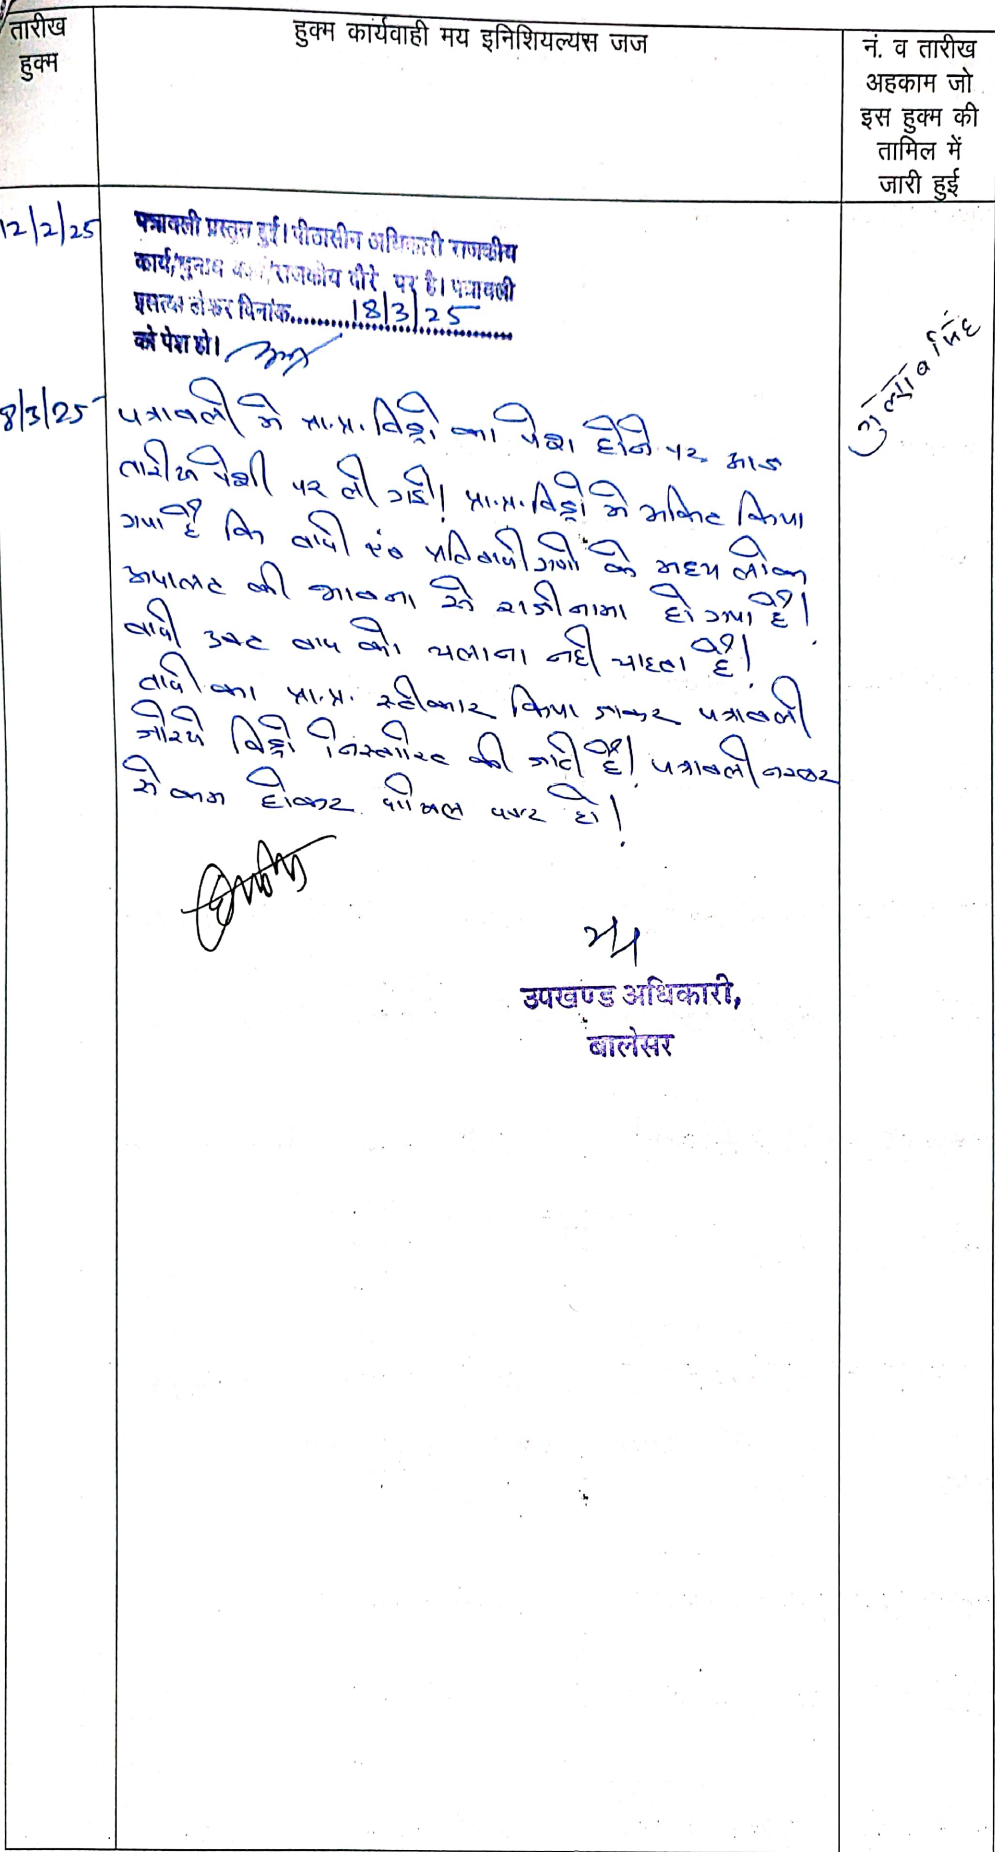 तारीख
हुक्म
हुक्म कार्यवाही मय इनिशियल्यस जज
नं. व तारीख
अहकाम जो
इस हुक्म की
तामिल में
जारी हुई
12/2/25
पत्रावली प्रस्तुत हुई। पीठासीन अधिकारी राजकीय
कार्य/चुनाव कार्य/राजकीय दौरे पर है। पत्रावली
इसतथा होकर दिनांक 18/3/25
को पेश हो।
8/3/25
पत्रावली मे प्रा.प्र. विड्रो का पेश होने पर आज
तारीख पेशी पर ली गई। प्रा.प्र. विड्रो मे अंकित किया
गया है कि वादी एंव प्रतिवादीगणो के मध्य लोक
अदालत की भावना से राजीनामा हो गया है।
वादी उक्त वाद को चलाना नही चाहता है।
वादी का प्रा.प्र. स्वीकार किया जाकर पत्रावली
जेरिये विड्रो निस्तारित की जाती है। पत्रावली नम्बर
से कम होकर दाखिल दफ्तर हो।
उपखण्ड अधिकारी,
बालेसर